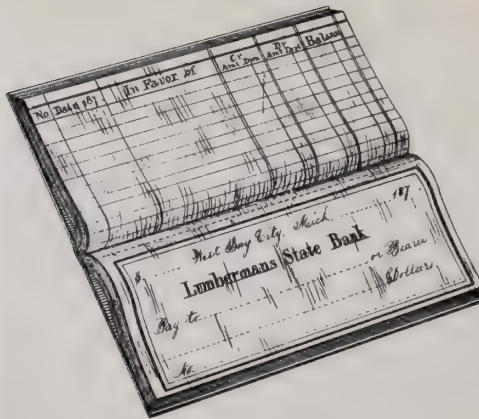 No Date 187 In Favor of Cr Amt Dep Dr Amt Dpd Balance
$ West Bay City, Mich. 187
Lumbermans State Bank
Pay to or Bearer
Dollars
No.